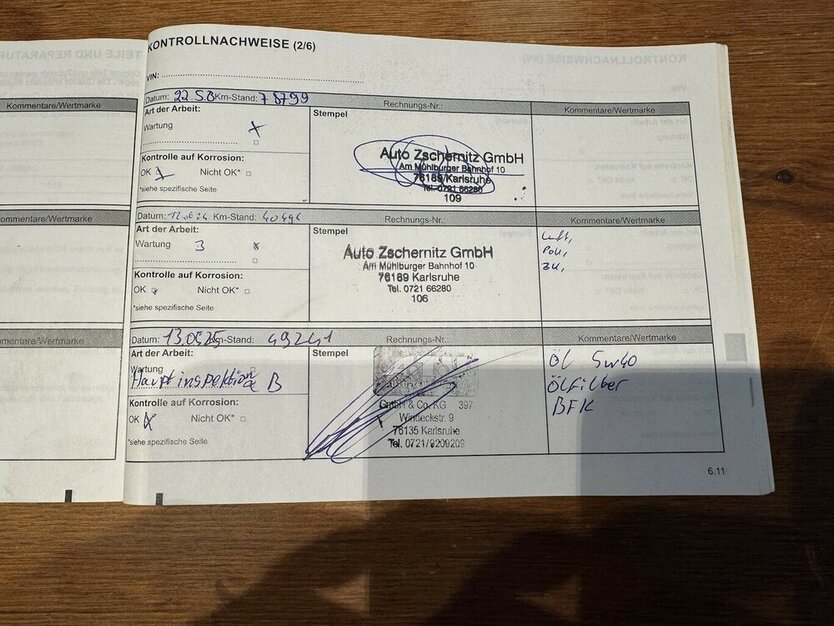 KONTROLLNACHWEISE (2/6)
TEILE UND REPARATUR
VIN:
Kommentare/Wertmarke
Datum: 22.5.0 Km-Stand: 78799
Rechnungs-Nr.:
Kommentare/Wertmarke
Art der Arbeit:
Stempel
Wartung x
Kontrolle auf Korrosion:
OK x Nicht OK*
*siehe spezifische Seite
Auto Zschernitz GmbH
Am Mühlburger Bahnhof 10
76189 Karlsruhe
Tel. 0721 66280
109
ommentare/Wertmarke
Datum: Km-Stand:
Rechnungs-Nr.:
Kommentare/Wertmarke
Art der Arbeit:
Stempel
Wartung 3 x
Kontrolle auf Korrosion:
OK x Nicht OK*
*siehe spezifische Seite
Auto Zschernitz GmbH
Am Mühlburger Bahnhof 10
76189 Karlsruhe
Tel. 0721 66280
106
Luft,
mentare/Wertmarke
Datum: 13.06.25 Km-Stand: 49241
Rechnungs-Nr.:
Kommentare/Wertmarke
Art der Arbeit:
Stempel
Wartung
Hauptinspektion B
Kontrolle auf Korrosion:
OK x Nicht OK*
*siehe spezifische Seite
GmbH & Co. KG 397
Windeckstr. 9
76135 Karlsruhe
Tel. 0721/8200209
Öl 5w40
Ölfilter
BFK
6.11